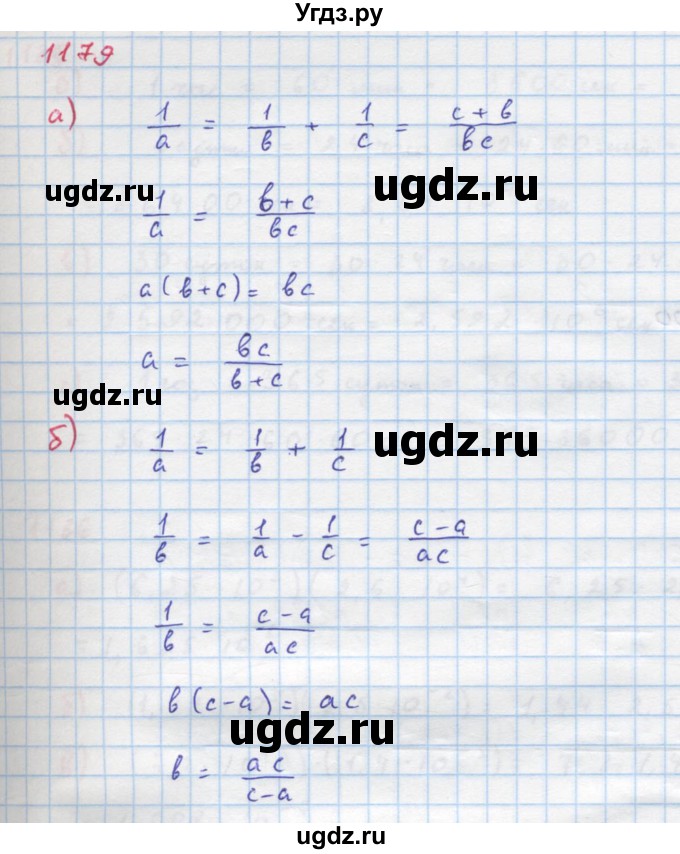 Угдз.ру
1179
а) 1/a = 1/b + 1/c = c+b/bc
ugdz.ru
ugdz.ru
1/a = b+c/bc
a(b+c) = bc
a = bc/b+c
ugdz.ru
б) 1/a = 1/b + 1/c
ugdz.ru
1/b = 1/a - 1/c = c-a/ac
1/b = c-a/ac
b(c-a) = ac
ugdz.ru
b = ac/c-a
ugdz.ru